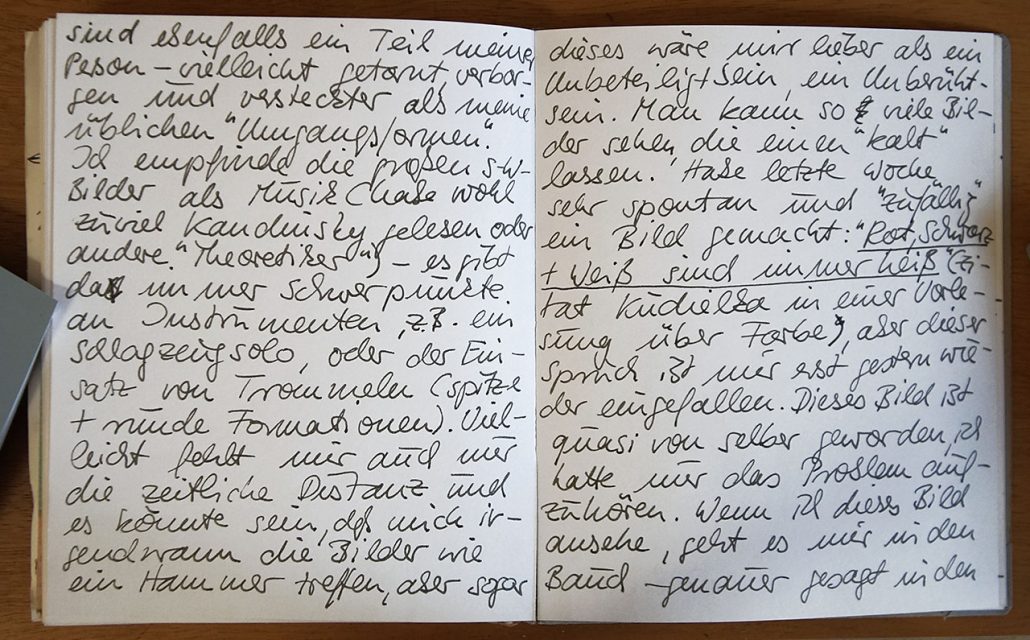 sind ebenfalls ein Teil meiner
Person – vielleicht getarnt, verbor-
gen und versteckter als meine
üblichen "Umgangsformen".
Ich empfinde die großen s-w-
Bilder als Musik (habe wohl
zuviel Kandinsky gelesen oder
andere "Theoretiker") – es gibt
da immer Schwerpunkte
an Instrumenten, z.B. ein
Schlagzeugsolo, oder der Ein-
satz von Trommeln (spitze
+ runde Formationen). Viel-
leicht fehlt mir auch nur
die zeitliche Distanz und
es könnte sein, daß mich ir-
gendwann die Bilder wie
ein Hammer treffen, aber sogar
dieses wäre mir lieber als ein
Unbeteiligt sein, ein Unberührt-
sein. Man kann so viele Bil-
der sehen, die einen "kalt"
lassen. Habe letzte Woche
sehr spontan und "zufällig"
ein Bild gemacht: "Rot, Schwarz
+ Weiß sind immer heiß" (Zi-
tat Kudielka in einer Vorle-
sung über Farbe), aber dieser
Spruch ist mir erst gestern wie-
der eingefallen. Dieses Bild ist
quasi von selber geworden, ich
hatte nur das Problem auf-
zuhören. Wenn ich dieses Bild
ansehe, geht es mir in den
Bauch – genauer gesagt in den